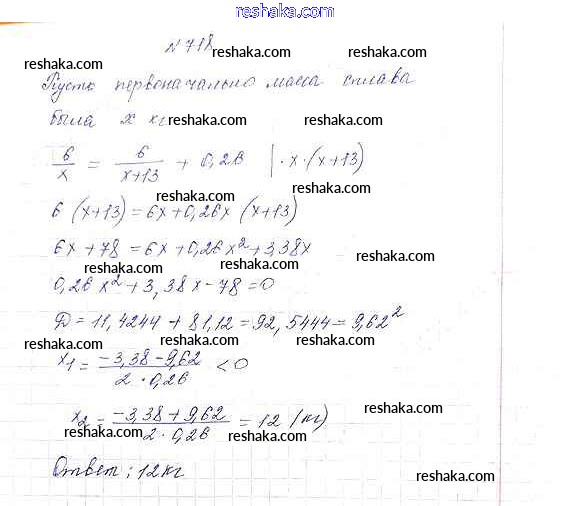 reshaka.com
№718
reshaka.com reshaka.com
reshaka.com
Пусть первоначально масса сплава
reshaka.com
была x кг reshaka.com reshaka.com
6/x = 6/(x+13) + 0,26 | · x · (x+13)
reshaka.com
6 (x+13) = 6x + 0,26x (x+13)
reshaka.com
6x + 78 = 6x + 0,26x² + 3,38x
reshaka.com
reshaka.com reshaka.com
0,26x² + 3,38x - 78 = 0
reshaka.com
Д = 11,4244 + 81,12 = 92,5444 = 9,62²
reshaka.com reshaka.com reshaka.com
x₁ = (-3,38 - 9,62)/(2 · 0,26) < 0
reshaka.com
x₂ = (-3,38 + 9,62)/(2 · 0,26) = 12 (кг)
reshaka.com reshaka.com
Ответ: 12 кг
reshaka.com